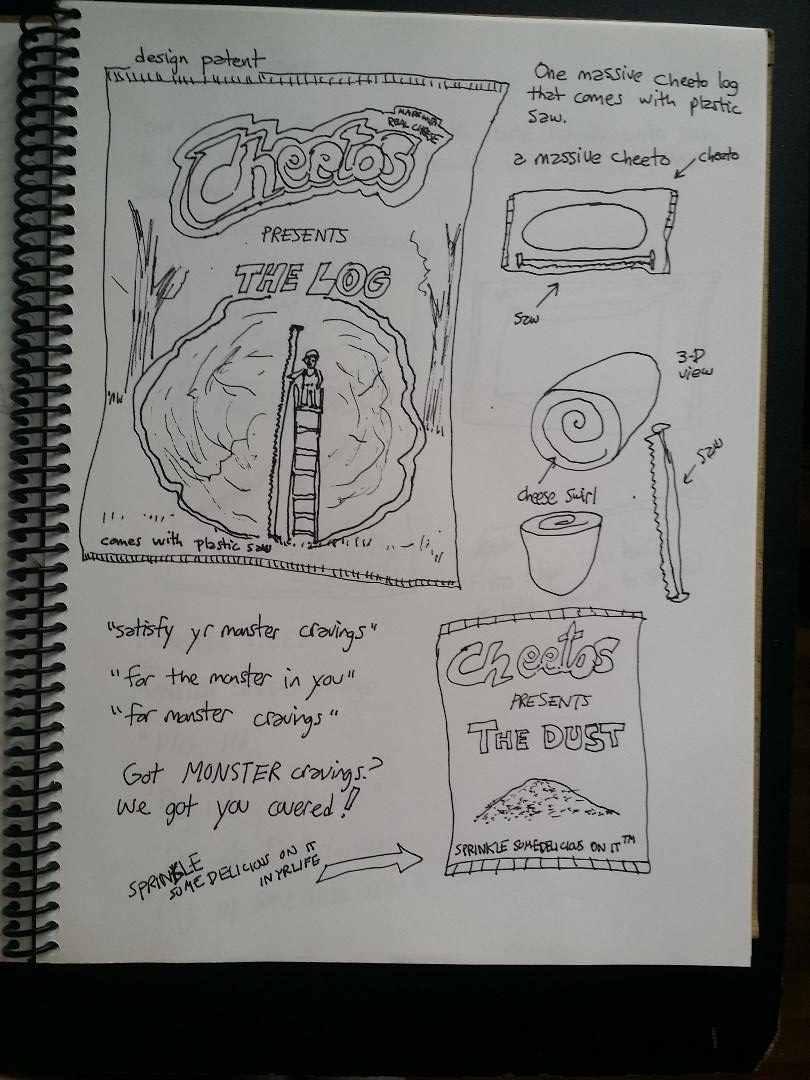 design patent
MADE WITH
REAL CHEESE
Cheetos
PRESENTS
THE LOG
comes with plastic saw
One massive cheeto log
that comes with plastic
saw.
a massive cheeto
cheeto
saw
3-D
view
saw
cheese swirl
"satisfy yr monster cravings"
"for the monster in you"
"for monster cravings"
Got MONSTER cravings?
We got you covered!
SPRINKLE
SOME DELICIOUS ON IT
IN YR LIFE
Cheetos
PRESENTS
THE DUST
SPRINKLE SOME DELICIOUS ON IT™